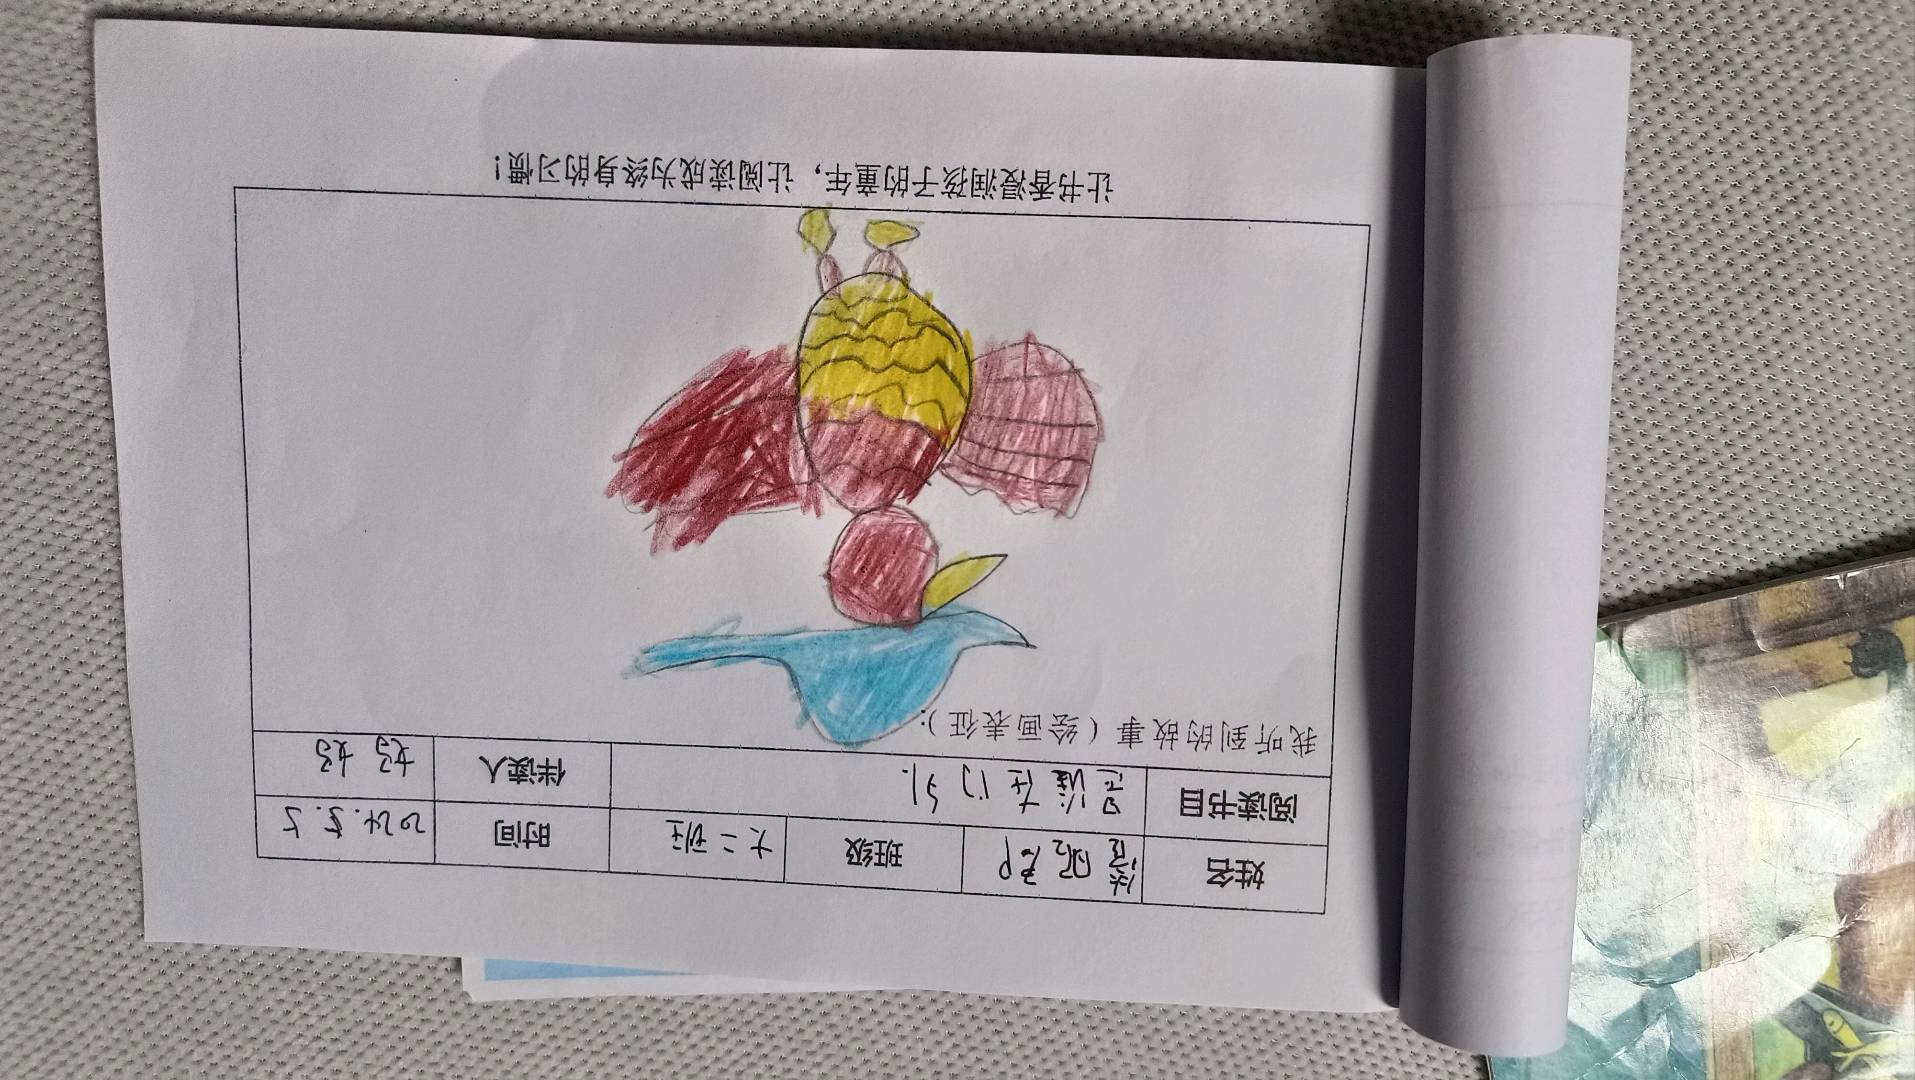 姓名 班级 大二班 时间 2024.5.5
阅读书目 是谁在门外. 伴读人 妈妈
我听到的故事（绘画表征）：
让书香浸润孩子的童年，让阅读成为终身的习惯！